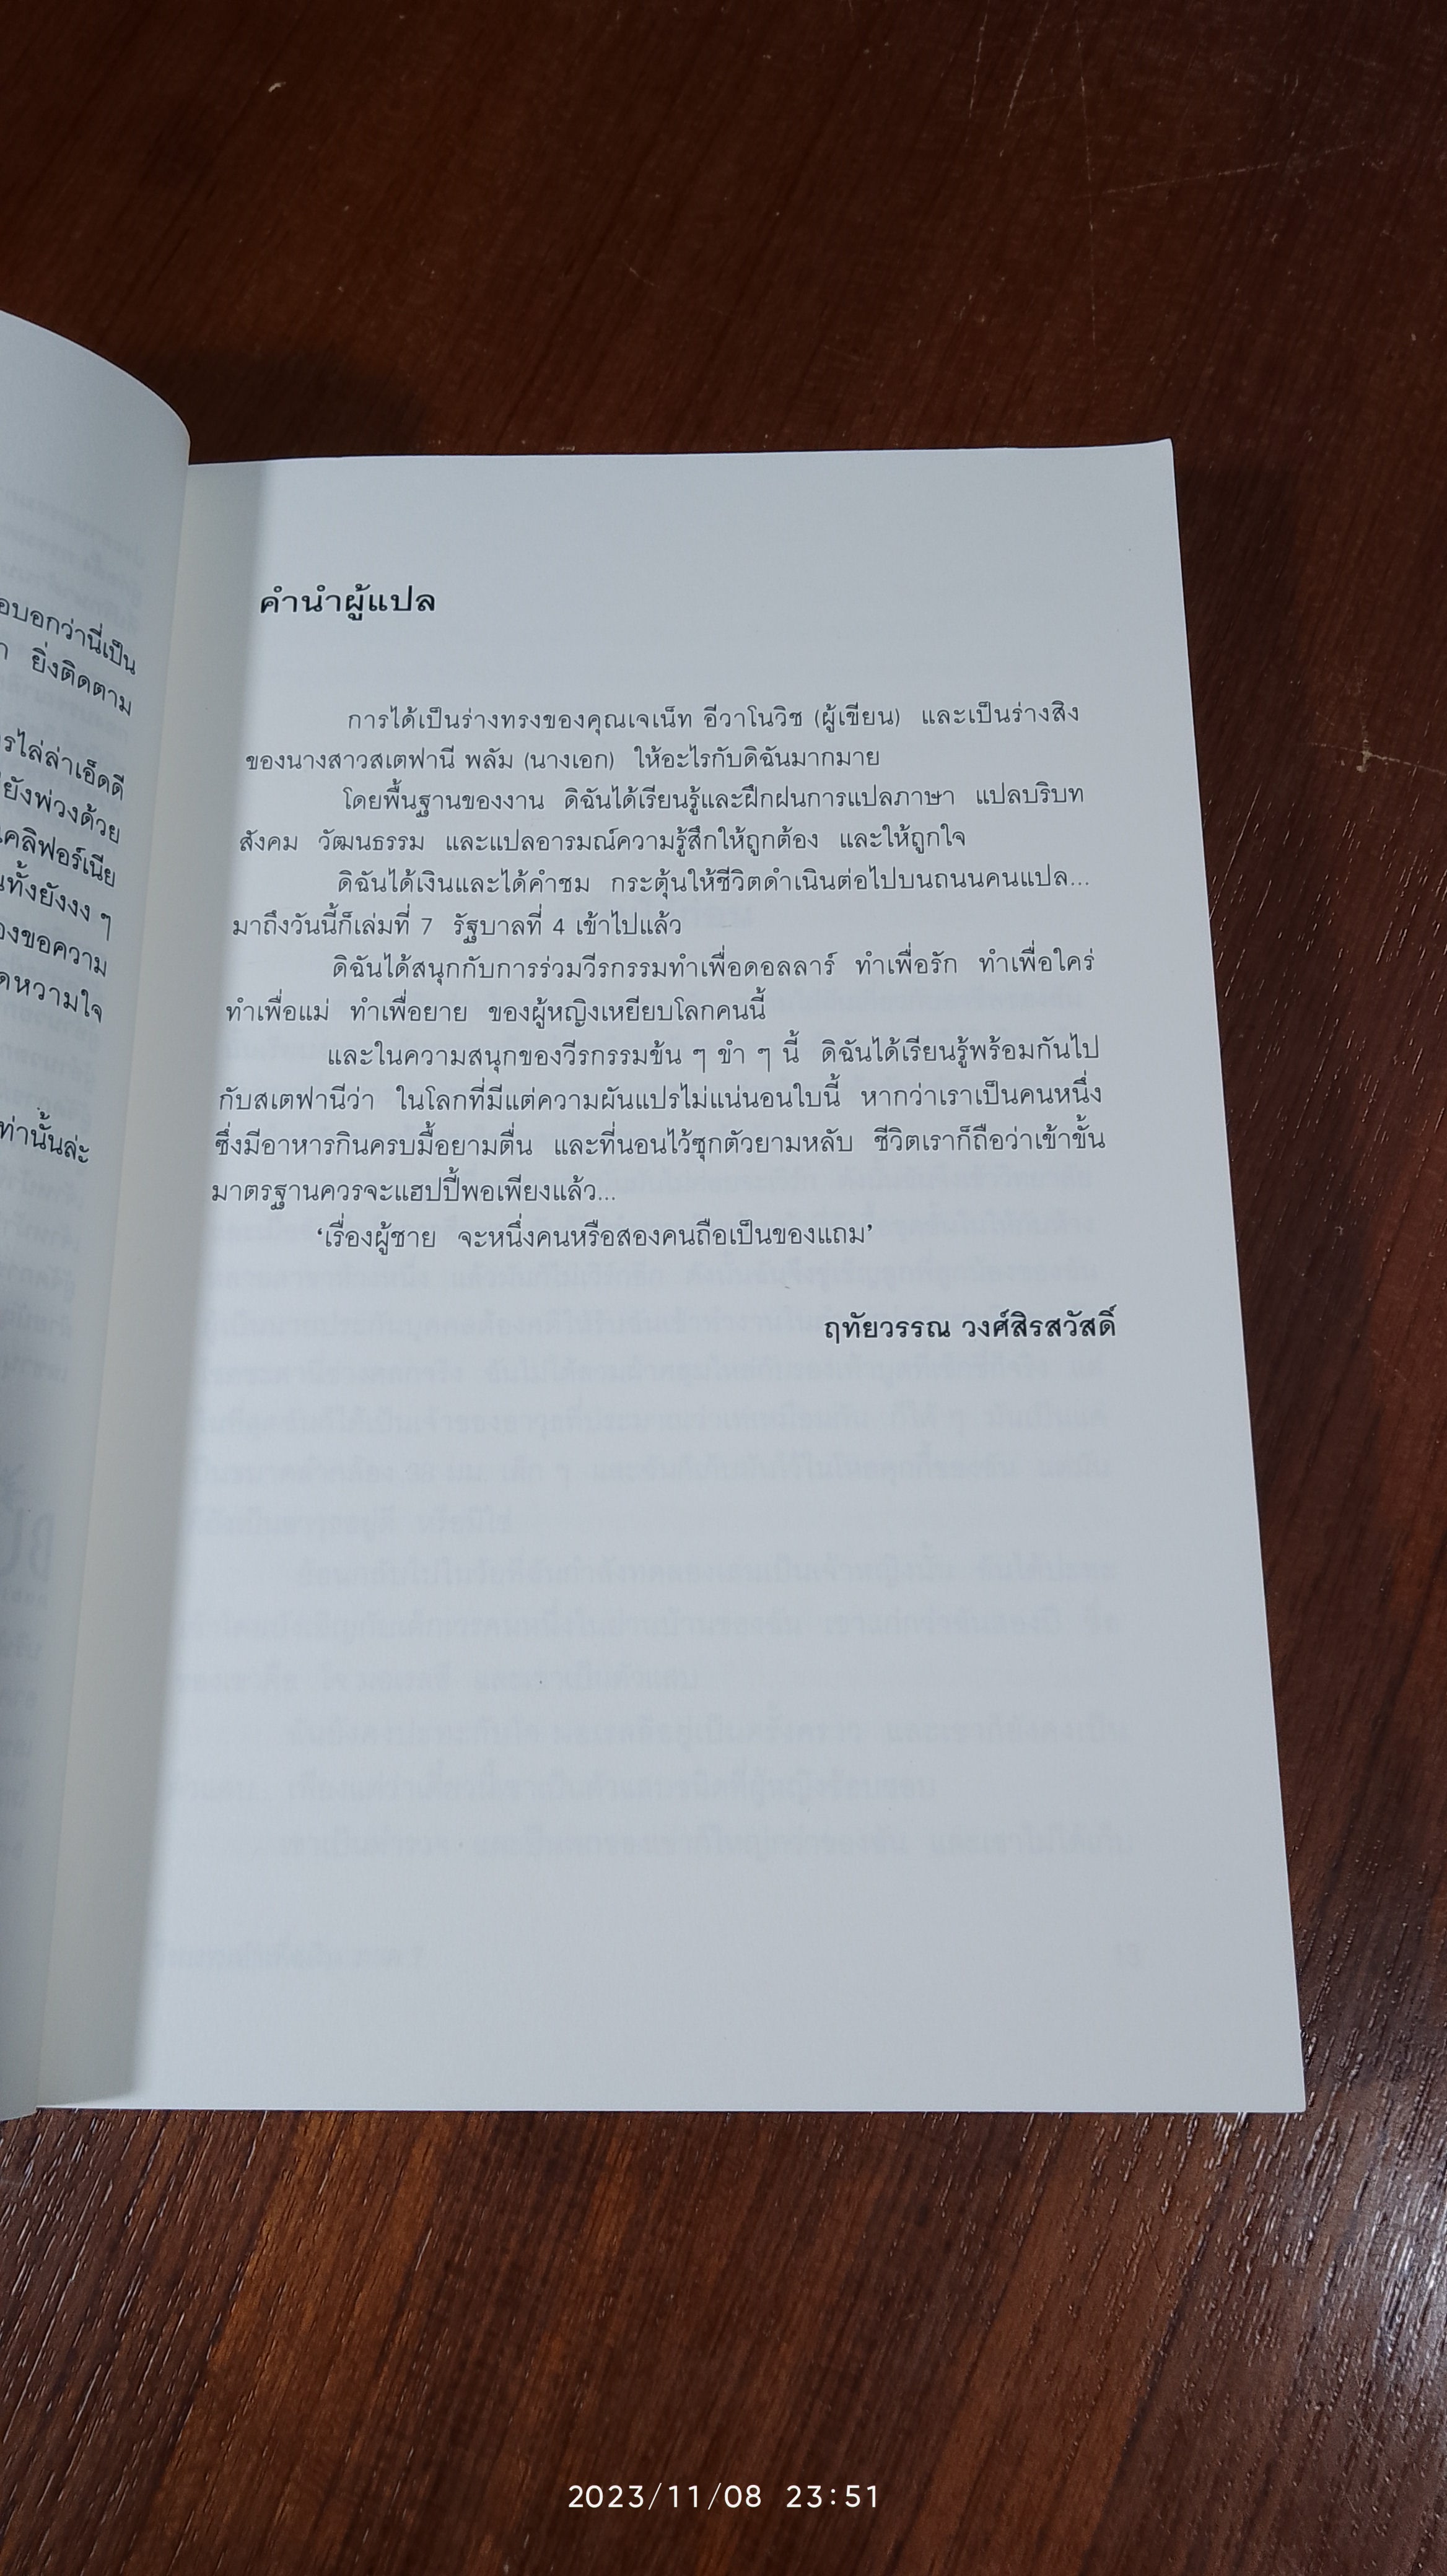 อบอกว่านี่เป็น
ยิ่งติดตาม
รไล่ล่าเอ็ดดี
ยังพ่วงด้วย
คลิฟอร์เนีย
ทั้งยังงง ๆ
องขอความ
ดหวามใจ
ท่านั้นล่ะ
คำนำผู้แปล
การได้เป็นร่างทรงของคุณเจเน็ท อีวาโนวิช (ผู้เขียน) และเป็นร่างสิง
ของนางสาวสเตฟานี พลัม (นางเอก) ให้อะไรกับดิฉันมากมาย
โดยพื้นฐานของงาน ดิฉันได้เรียนรู้และฝึกฝนการแปลภาษา แปลบริบท
สังคม วัฒนธรรม และแปลอารมณ์ความรู้สึกให้ถูกต้อง และให้ถูกใจ
ดิฉันได้เงินและได้คำชม กระตุ้นให้ชีวิตดำเนินต่อไปบนถนนคนแปล...
มาถึงวันนี้ก็เล่มที่ 7 รัฐบาลที่ 4 เข้าไปแล้ว
ดิฉันได้สนุกกับการร่วมวีรกรรมทำเพื่อดอลลาร์ ทำเพื่อรัก ทำเพื่อใคร่
ทำเพื่อแม่ ทำเพื่อยาย ของผู้หญิงเหยียบโลกคนนี้
และในความสนุกของวีรกรรมข้น ๆ ขำ ๆ นี้ ดิฉันได้เรียนรู้พร้อมกันไป
กับสเตฟานีว่า ในโลกที่มีแต่ความผันแปรไม่แน่นอนใบนี้ หากว่าเราเป็นคนหนึ่ง
ซึ่งมีอาหารกินครบมื้อยามตื่น และที่นอนไว้ซุกตัวยามหลับ ชีวิตเราก็ถือว่าเข้าขั้น
มาตรฐานควรจะแฮปปี้พอเพียงแล้ว...
‘เรื่องผู้ชาย จะหนึ่งคนหรือสองคนถือเป็นของแถม’
ฤทัยวรรณ วงศ์สิรสวัสดิ์
2023/11/08 23:51